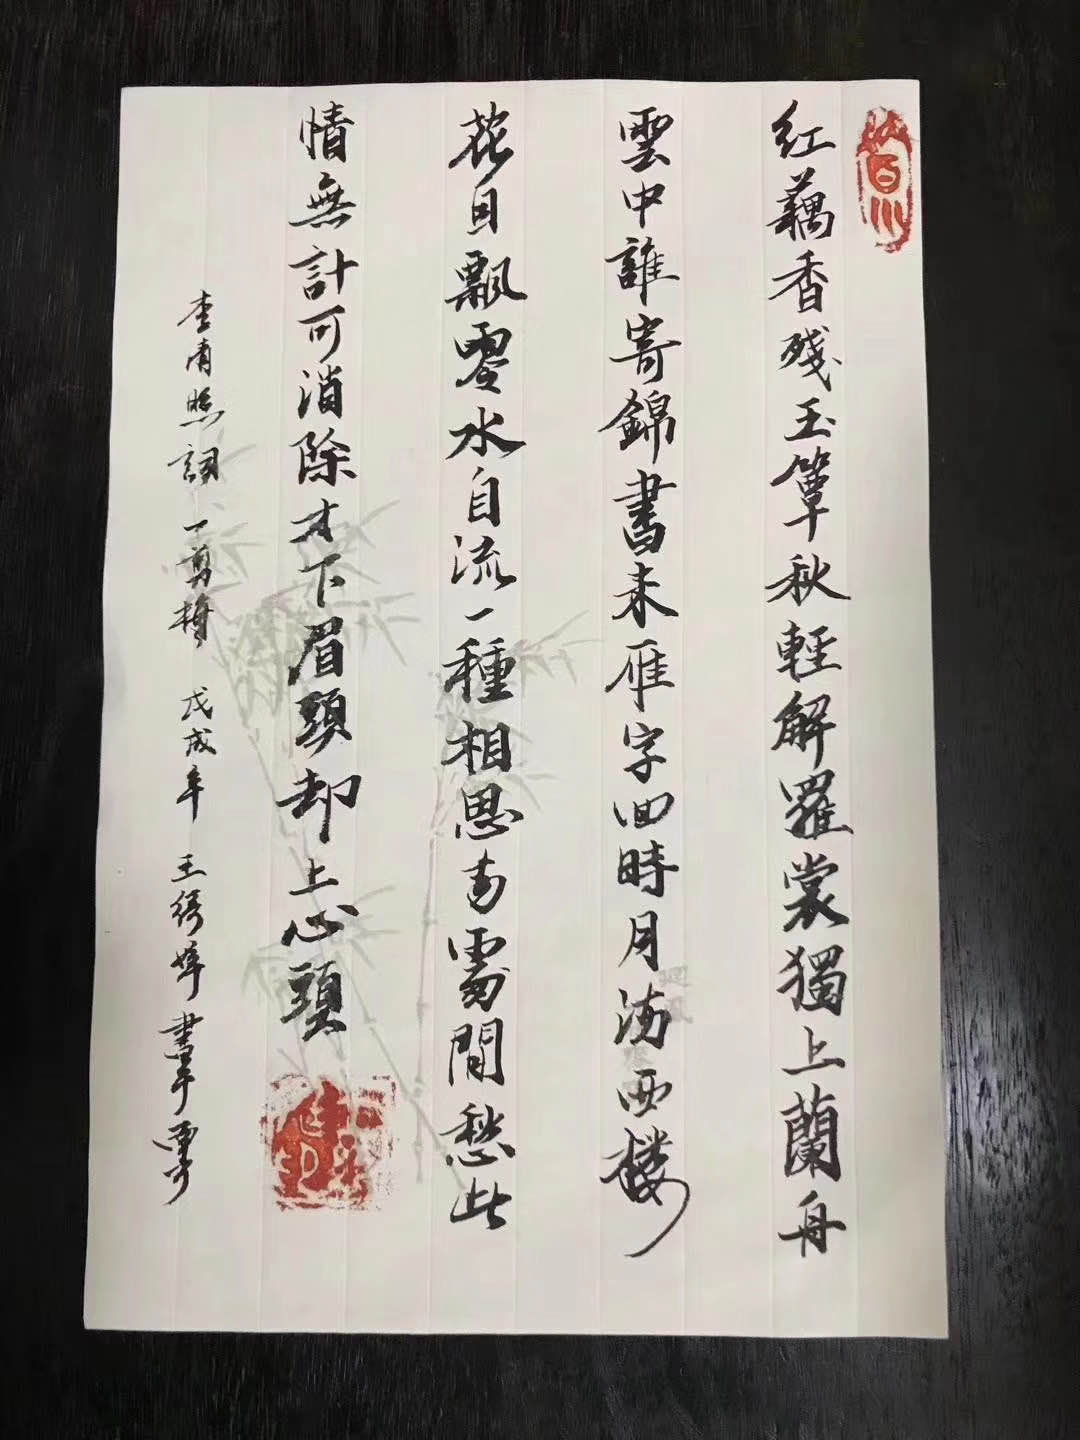 红藕香殘玉簟秋輕解羅裳獨上蘭舟
雲中誰寄錦書来雁字回時月满西楼
花自飄零水自流一種相思两處閒愁此
情無計可消除才下眉頭却上心頭
李清照詞 一剪梅 戊戌年 王 書于